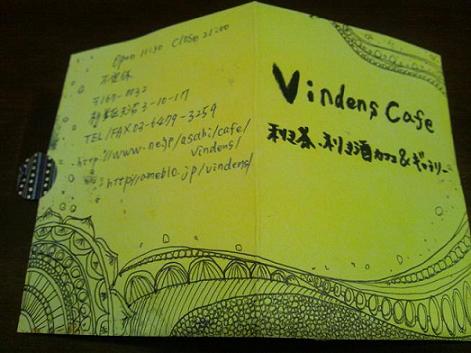 Open 11:30 Close 21:00
不定休
〒167-0032
杉並区天沼3-10-17
TEL/FAX 03-6479-3259
http://www.ne.jp/asahi/cafe/
vindens/
http://ameblo.jp/vindens/
Vindens Cafe
利き茶、利き酒カフェ&ギャラリー